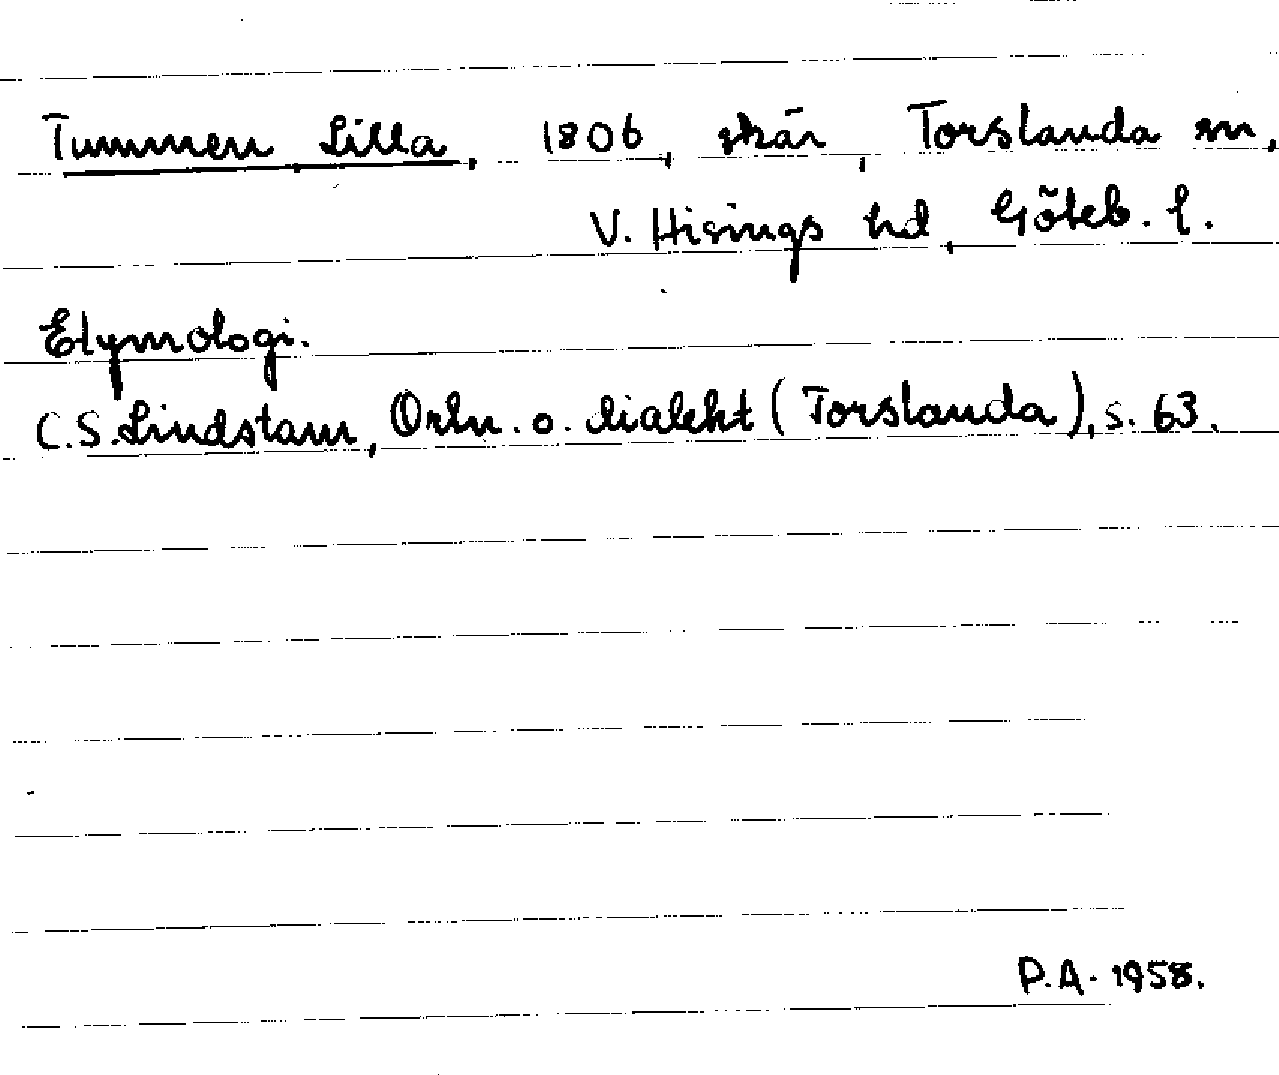 Tummen, Lilla, 1806, skär, Torslanda sn,
V. Hisings hd, Göteb. l.
Etymologi.
C.S. Lindstam, Ortn. o. dialekt (Torslanda), s. 63.
P.A. 1958.